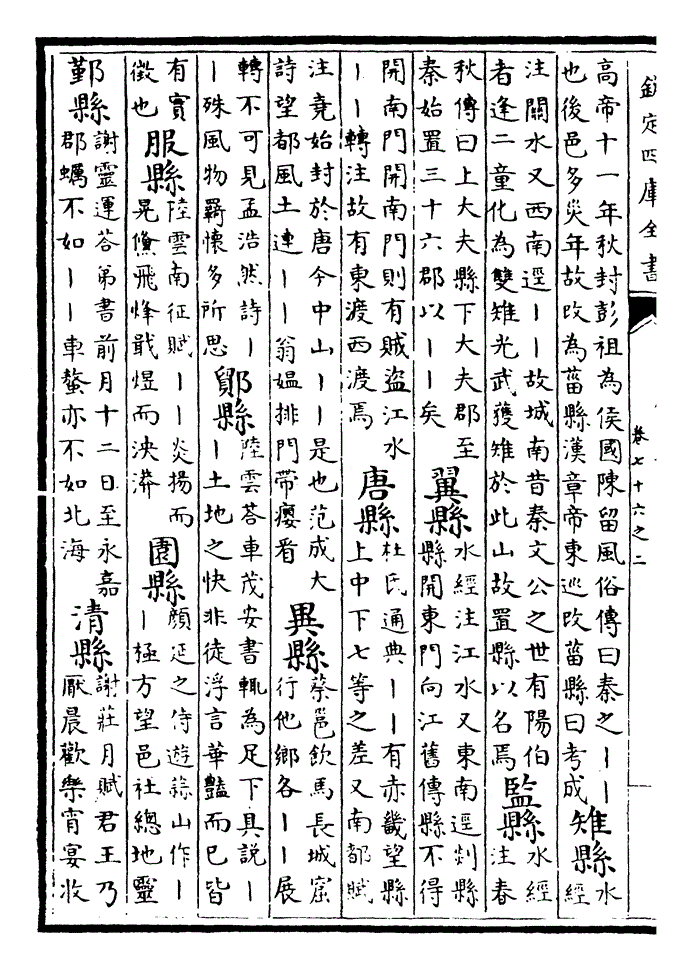 欽定四庫全書
卷七十六之二
高帝十一年秋封彭祖為侯國陳留風俗傳曰秦之丨丨
也後邑多災年故改為菑縣漢章帝東巡改菑縣曰考成
雉縣
水
經
注關水又西南逕丨丨故城南昔秦文公之世有陽伯
者逢二童化為雙雉光武獲雉於此山故置縣以名焉
監縣
水經
注春
秋傳曰上大夫縣下大夫郡至
秦始置三十六郡以丨丨矣
翼縣
水經注江水又東南逕剡縣
縣開東門向江舊傳縣不得
開南門開南門則有賊盜江水
丨丨轉注故有東渡西渡焉
唐縣
杜氏通典丨丨有赤畿望縣
上中下七等之差又南都賦
注堯始封於唐今中山丨丨是也范成大
詩望都風土連丨丨翁媼排門帶癭看
異縣
蔡邕飲馬長城窟
行他鄉各丨丨展
轉不可見孟浩然詩丨
丨殊風物羈懷多所思
鄮縣
陸雲荅車茂安書輒為足下具說丨
丨土地之快非徒浮言華豔而已皆
有實
徵也
服縣
陸雲南征賦丨丨炎揚而
晃儵飛烽戢煜而泱漭
圜縣
顔延之侍遊蒜山作丨
丨極方望邑社總地靈
鄞縣
謝靈運荅弟書前月十二日至永嘉
郡蠣不如丨丨車螯亦不如北海
清縣
謝莊月賦君王乃
厭晨歡樂宵宴收